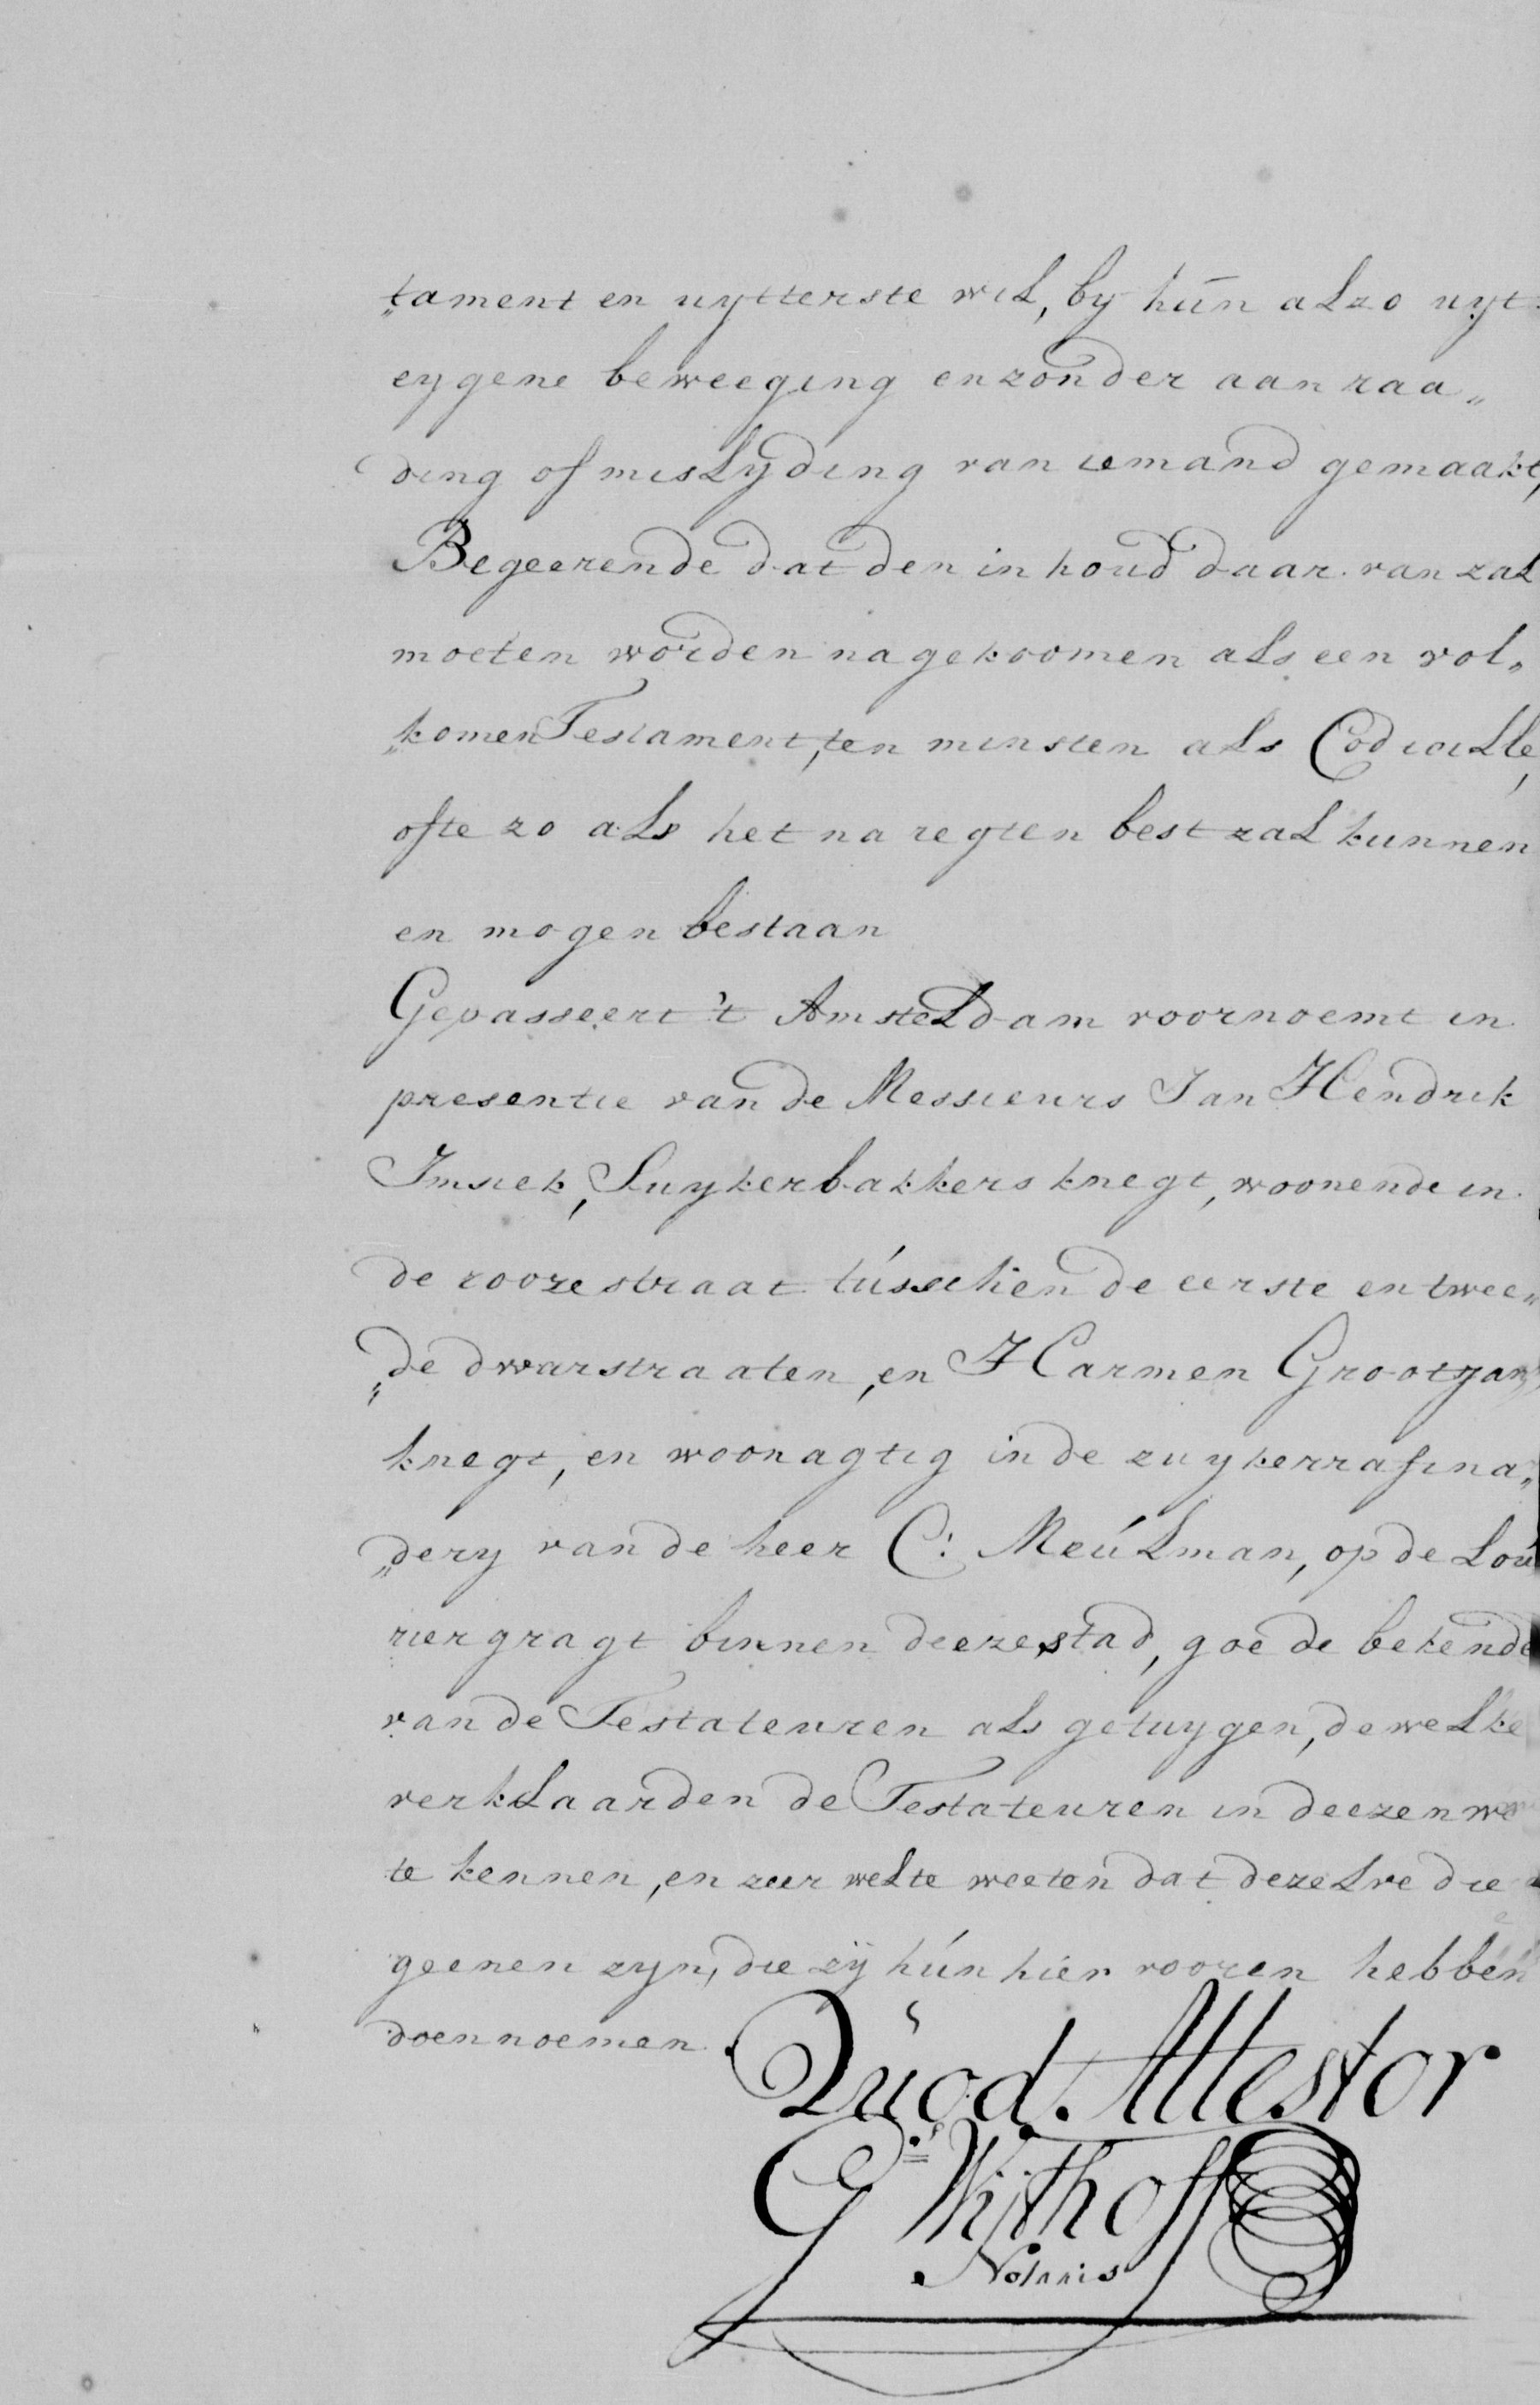 „tament en uytterste wil, by hún alzo uyt:
eygene beweeging en zonder aanraa„
ding of mislyding van iemand gemaakt,
Begeerende dat den inhoud daar van zal
moeten worden nagekoomen als een vol„
„komen Testament, ten minsten als Codicille,
ofte zo als het na regten best zal kunnen
en mogen bestaan
Gepasseert 't Amsteldam voornoemt in
presentie van de Messieurs Jan Hendrik
Imsiek, Suykerbakkers knegt, woonende in
de rooze straat tússchen de eerste en twee„
„de dwarstraaten, en Harmen Grootjan,
knegt, en woonagtig in de zuykerrafina„
„dery van de heer C: Meúlman, op de Lou
riergragt binnen deeze stad, goede bekende
van de Testateuren als getuygen, dewelke
verklaarden de Testateuren in deezen we
te kennen, en zeer wel te weeten dat dezelve die
geenen zyn, die zÿ hún hier vooren hebben
doen noemen.
Quod Attestor
G Wijthoff
Notaris